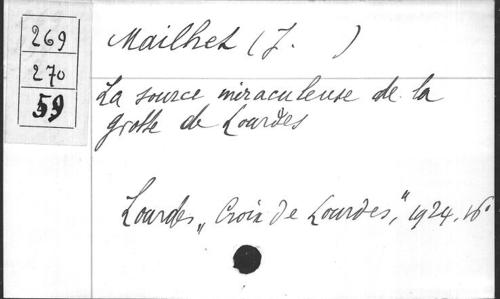 269
270
59
Mailhet (J. )
La source miraculeuse de la
grotte de Lourdes
Lourdes, „Croix de Lourdes", 1924, 16°